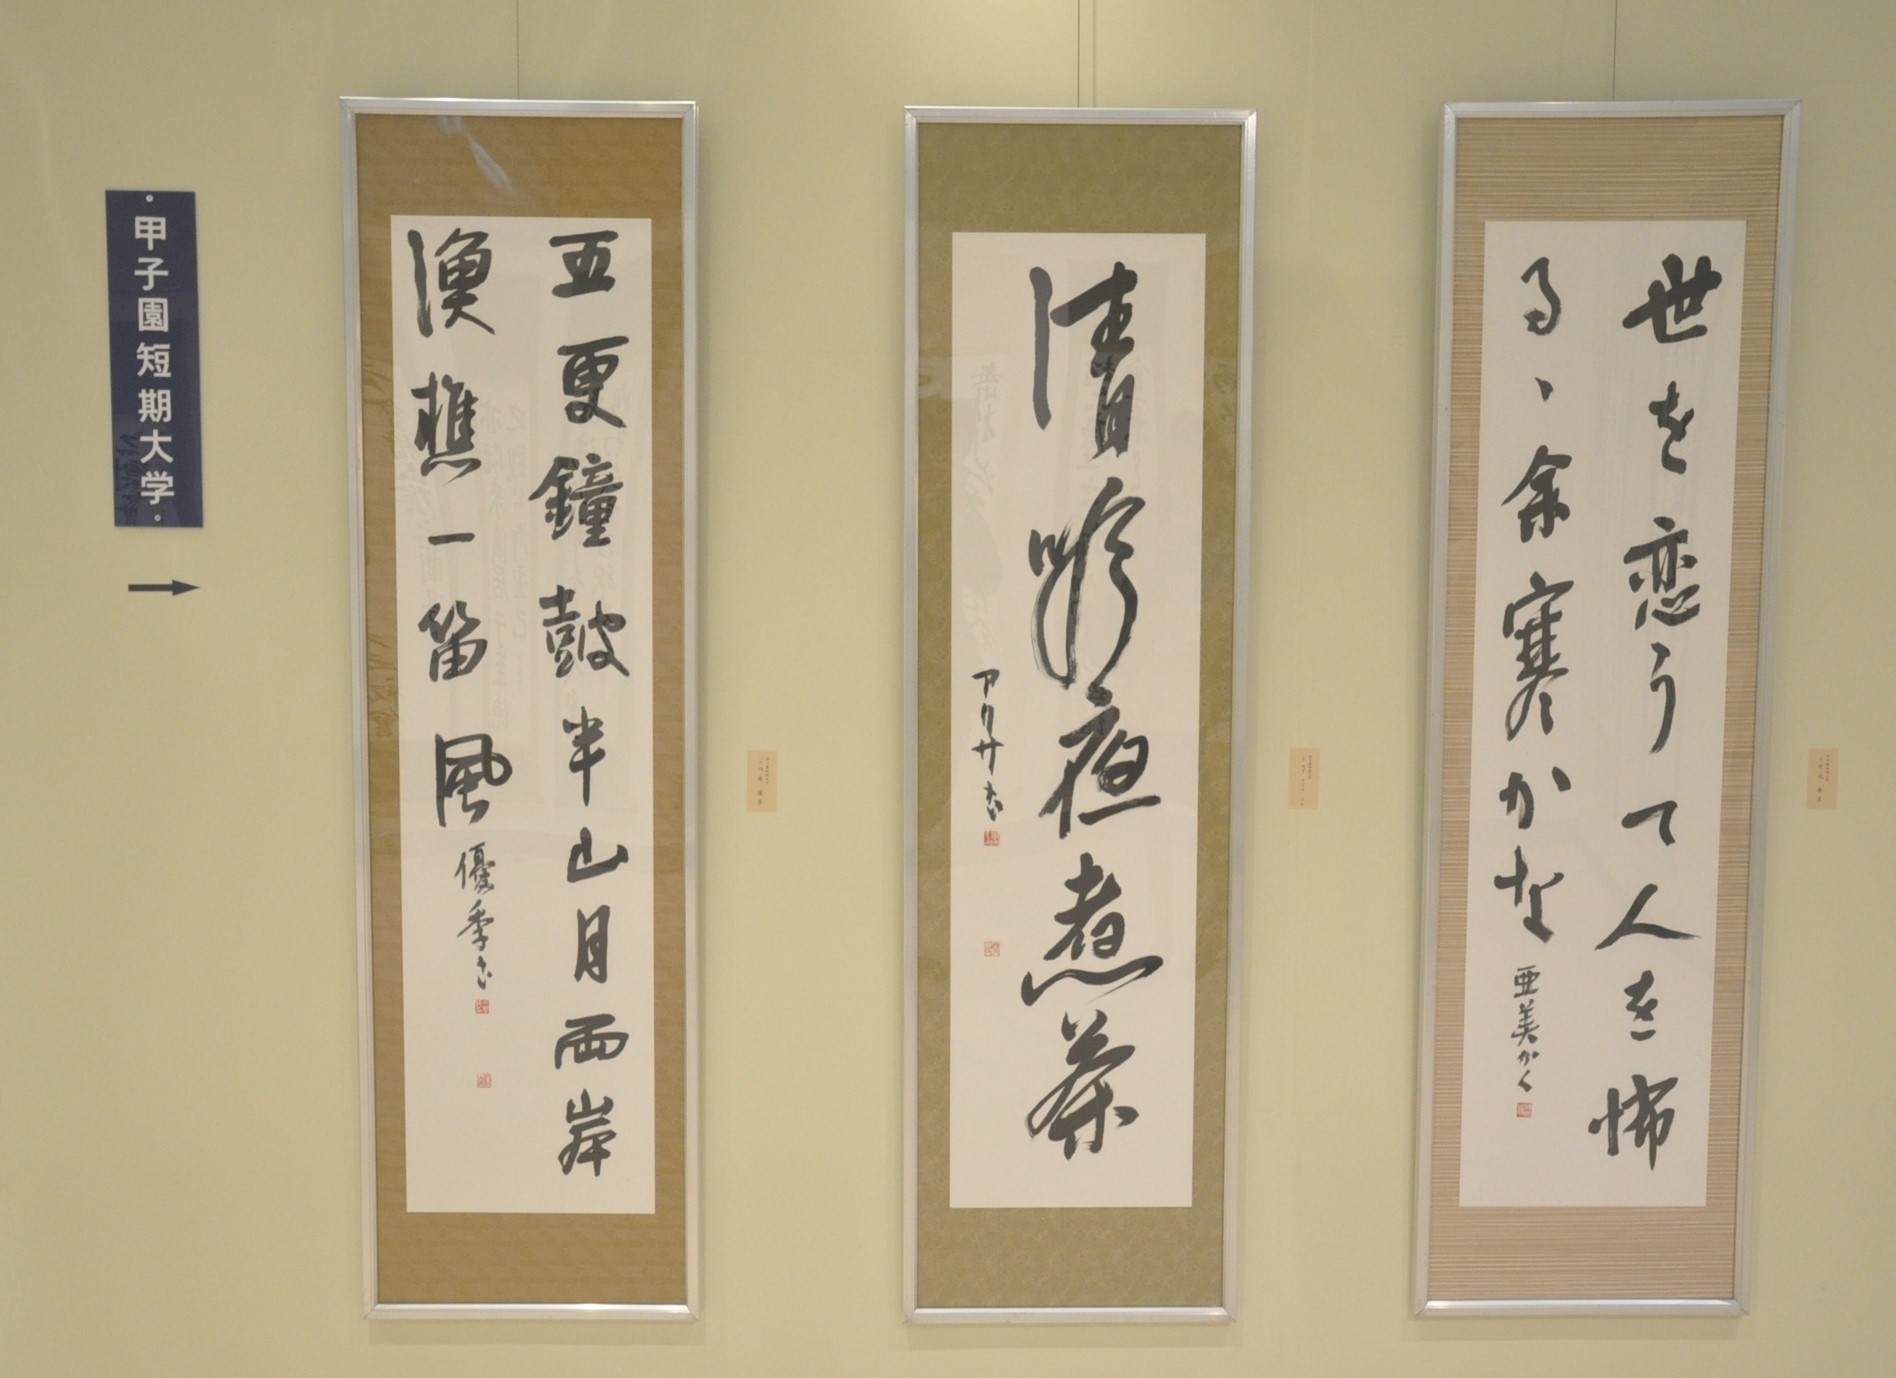 甲子園短期大学
五更鐘皷半山月両岸
漁樵一笛風
優季書
清吟夜煮茶
アリサ書
世を恋うて人を怖
るゝ余寒かな
亜美かく